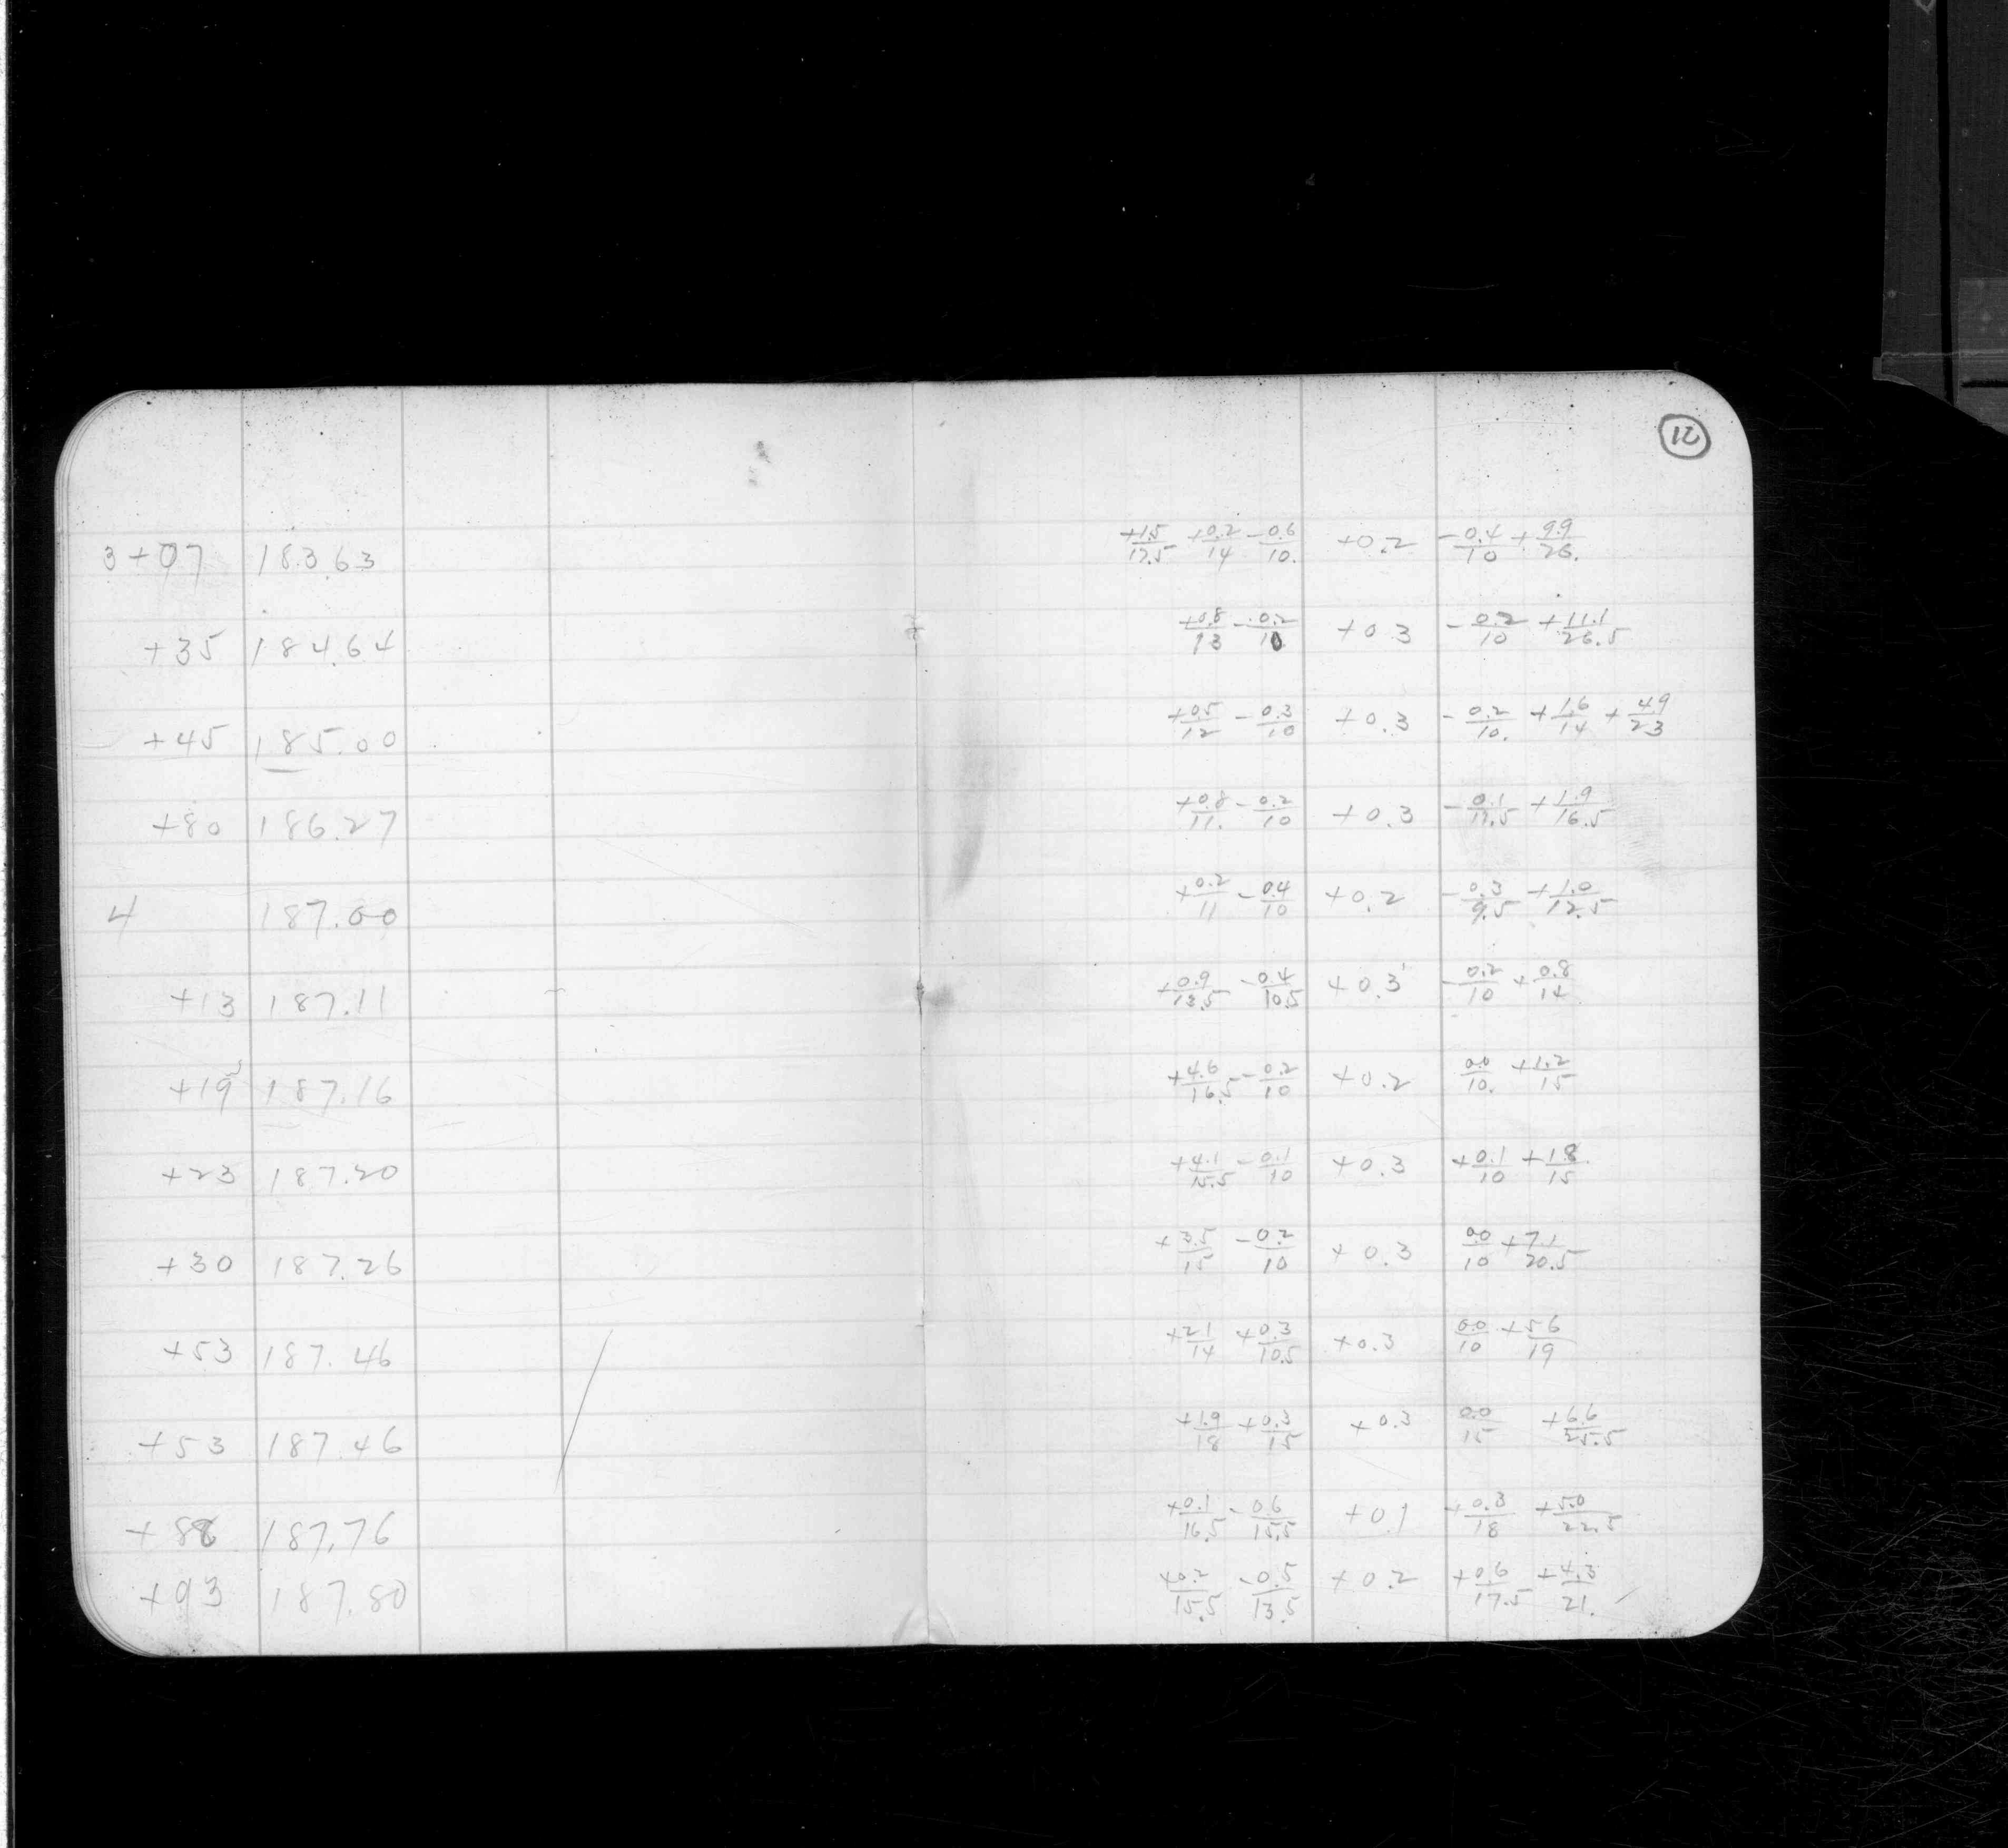 12
3+07 183.63 +1.5/17.5 +0.2/14 -0.6/10. +0.2 -0.4/10 +9.9/26.
+35 184.64 +0.8/13 -0.2/10 +0.3 -0.2/10 +11.1/26.5
+45 185.00 +0.5/12 -0.3/10 +0.3 -0.2/10. +1.6/14 +4.9/23
+80 186.27 +0.8/11. -0.2/10 +0.3 -0.1/11.5 +1.9/16.5
4 187.00 +0.2/11 -0.4/10 +0.2 -0.3/9.5 +1.0/12.5
+13 187.11 +0.9/13.5 -0.4/10.5 +0.3 -0.2/10 +0.8/14
+19 187.16 +4.6/16.5 -0.2/10 +0.2 0.0/10. +1.2/15
+23 187.20 +4.1/15.5 -0.1/10 +0.3 +0.1/10 +1.8/15
+30 187.26 +3.5/15 -0.2/10 +0.3 0.0/10 +7.1/20.5
+53 187.46 +2.1/14 +0.3/10.5 +0.3 0.0/10 +5.6/19
+53 187.46 +1.9/18 +0.3/15 +0.3 0.0/15 +6.6/25.5
+88 187.76 +0.1/16.5 -0.6/15.5 +0.1 +0.3/18 +5.0/22.5
+93 187.80 +0.2/15.5 -0.5/13.5 +0.2 +0.6/17.5 +4.3/21.